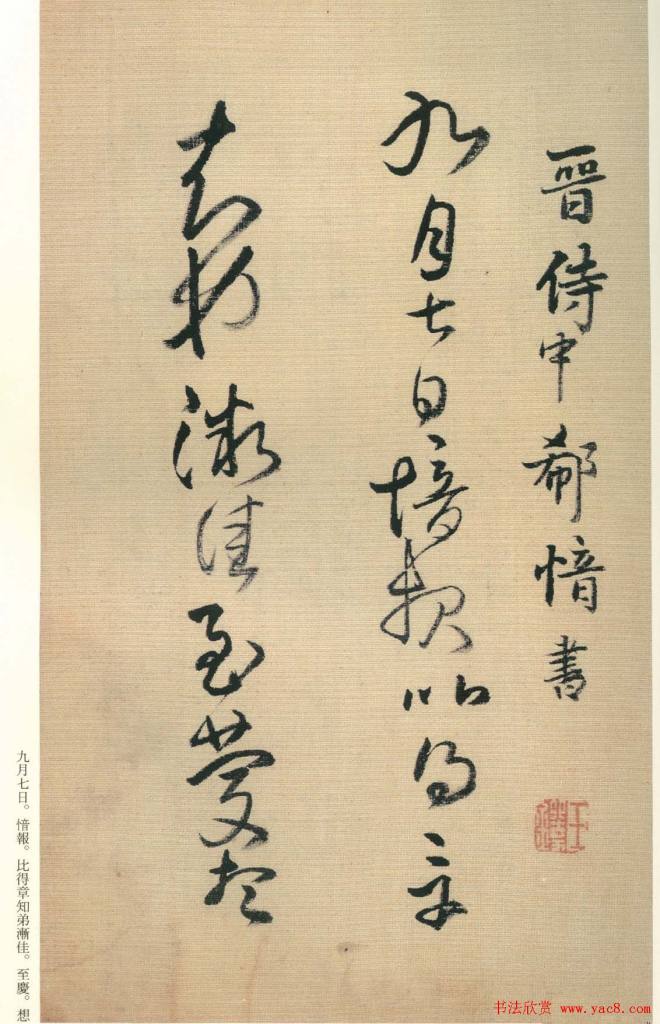 晉侍中郗愔書
九月七日愔報比得章
知弟漸佳至慶想
九月七日。愔報。比得章知弟漸佳。至慶。想
书法欣赏 www.yac8.com